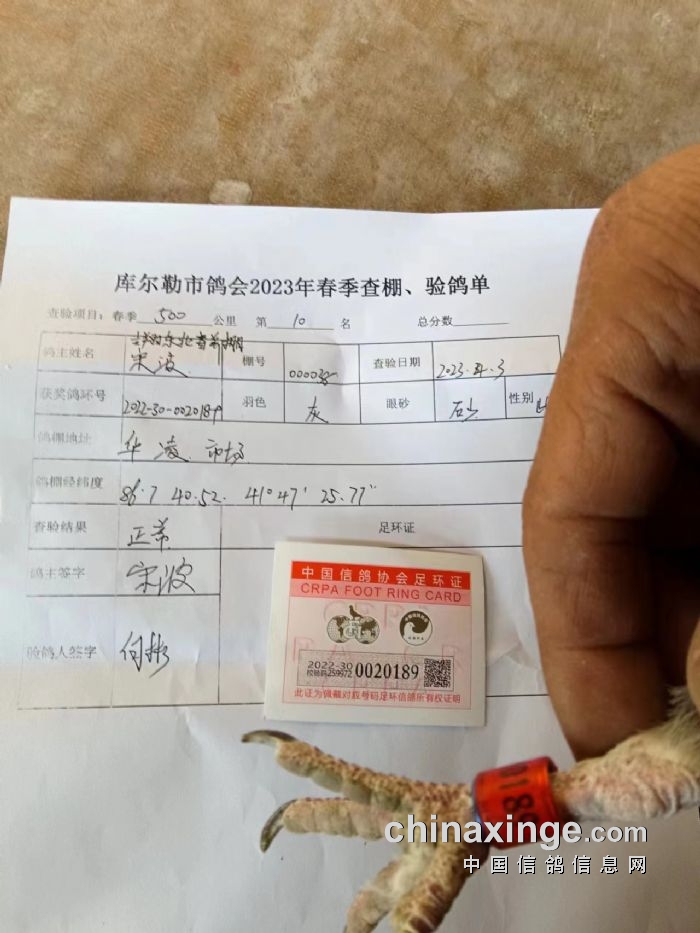 库尔勒市鸽会2023年春季查棚、验鸽单
查验项目：春季 500 公里 第 10 名 总分数
鸽主姓名 宋波 棚号 查验日期 2023.4.3
获奖鸽环号 2022-30-0020189 羽色 灰 眼砂 砂 性别
鸽棚地址 华凌市场
鸽棚经纬度 86.7 40.52. 41°47′ 25.77″
查验结果 正常 足环证
鸽主签字 宋波
验鸽人签字
中国信鸽协会足环证
CRPA FOOT RING CARD
2022-30 0020189
校验码259972
此证为佩戴对应号码足环信鸽所有权证明
chinaxinge.com
中国信鸽信息网